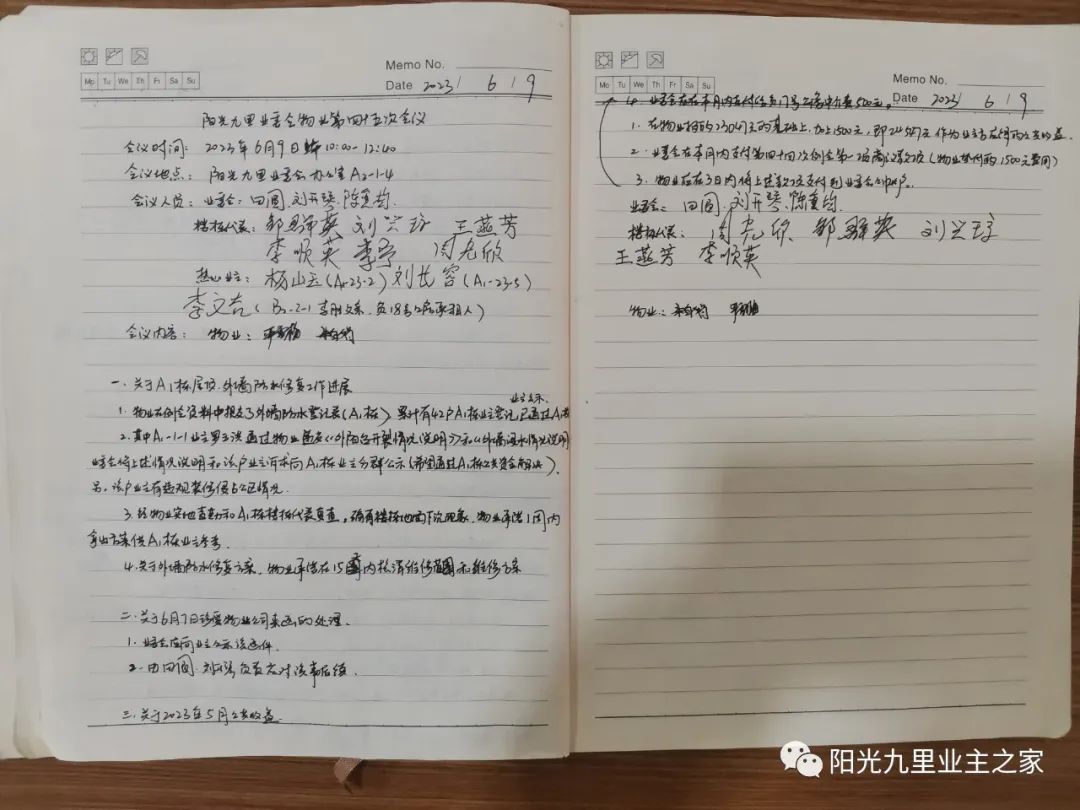 Memo No.
Mo Tu We Th Fr Sa Su
Date 2023 / 6 / 9
阳光九里业委会物业第四十五次会议
会议时间: 2023年6月9日 10:00-12:40
会议地点: 阳光九里业委会办公室A2-1-4
会议人员: 业委会: 田圆 刘开琴 陈重钧
楼栋代表: 邹驿英 刘兴琼 王燕芳
李顺英 李予 周光欣
热心业主: 杨山云(A1-23-2) 刘长容(A1-23-5)
李文古( B2-2-1 负18号 承租人)
会议内容: 物业:
一、关于A1栋屋顶、外墙防水修复工作进展
业主公示
1. 物业在例会资料中提交了外墙防水登记表(A1栋) 累计有42户A1栋业主登记,已通过A1
2. 其中A1-1-1业主 通过物业 《外阳台开裂情况说明》和《外墙浸水情况说明
业委会将上述情况说明和该户业主诉求向A1栋业主分群公示(希望通过A1栋公共资金解决).
另,该户业主有违规装修侵占公区情况.
3. 经物业实地查勘和A1栋楼栋代表复查,确有楼栋地面下沉现象,物业承诺1周内
拿出方案供A1栋业主参考.
4. 关于外墙防水修复方案,物业承诺在15 内核清维修范围和维修方案
二、关于6月7日 物业公司来函的处理.
1. 业委会应向业主公示该函件.
2. 由田圆、刘开琴负责应对该事后续.
三、关于2023年5月公共收益
Memo No.
Mo Tu We Th Fr Sa Su
Date 2023 / 6 / 9
4. 业委会应在本月内支付 500元.
1. 在物业 2304 元的基础上,加上1500元,即 元作为业主应得的公共收益.
2. 业委会在本月内支付第四十四次例会第一项商议款项(物业垫付的1500元费用)
3. 物业应在3日内将上述款项支付到业委会 账户.
业委会: 田圆 刘开琴 陈重钧
楼栋代表: 周光欣 邹驿英 刘兴琼
王燕芳 李顺英
物业:
阳光九里业主之家